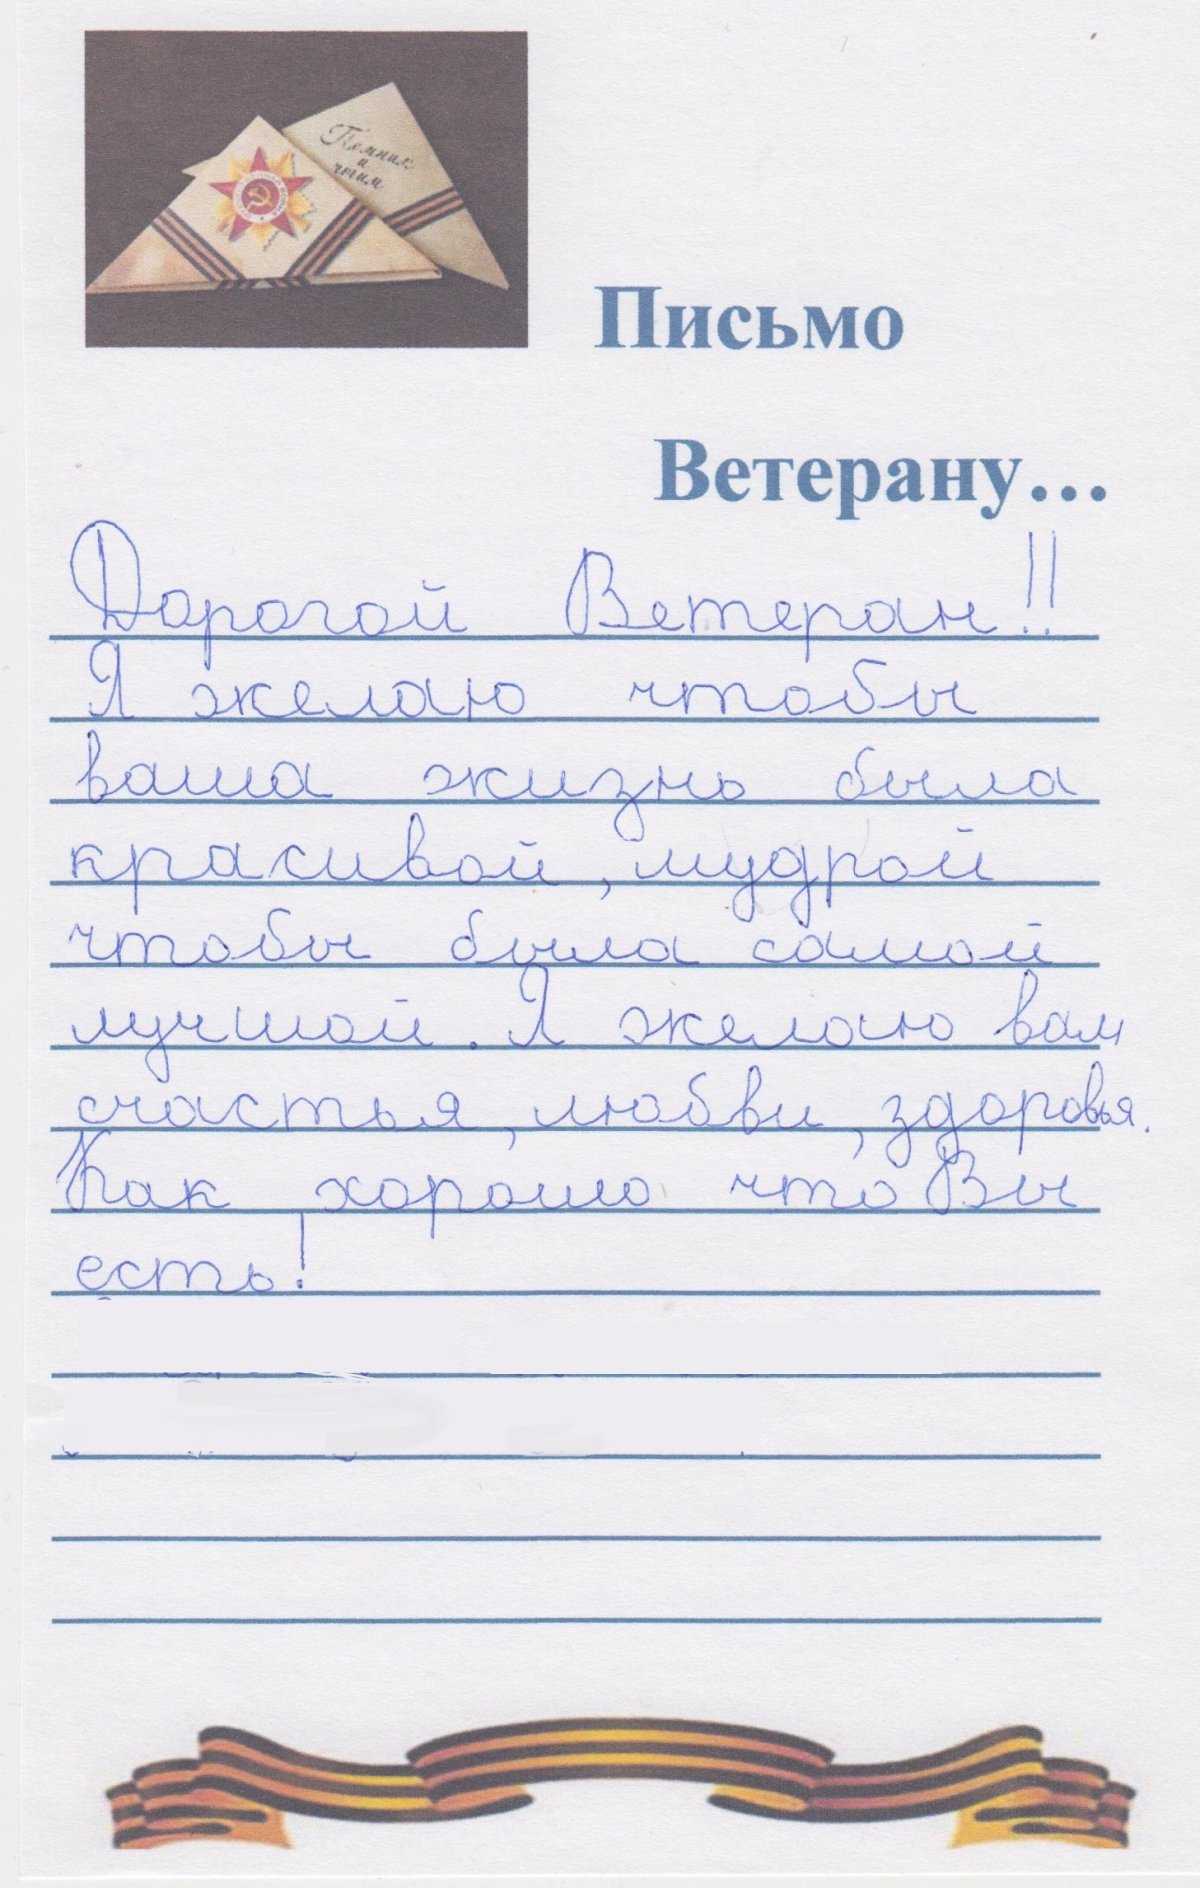 Помним
и
чтим
Письмо
Ветерану...
Дорогой Ветеран!!
Я желаю чтобы
ваша жизнь была
красивой, мудрой
чтобы была самой
лучшой. Я желаю вам
счастья, любви, здоровья.
Как хорошо что Вы
есть!